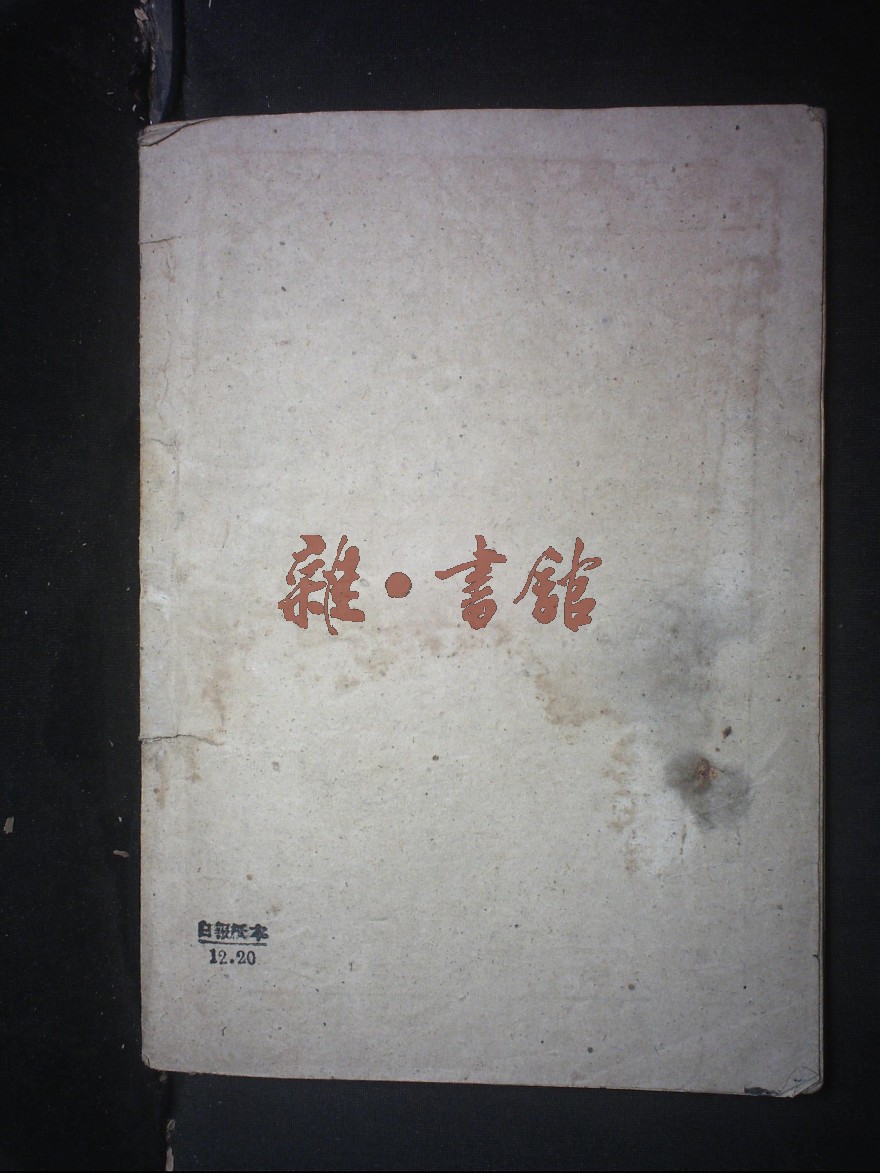 雜•書館
白報紙本
12.20